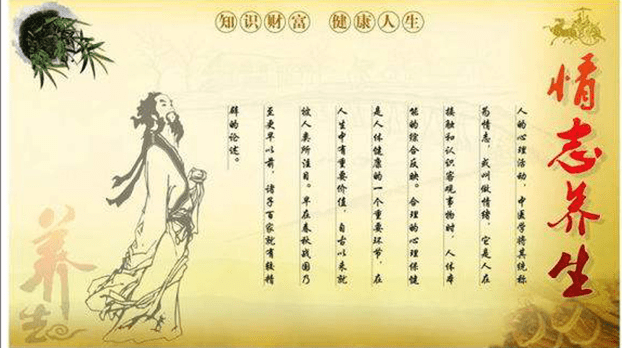 知识财富 健康人生
情志养生
人的心理活动，中医学将其统称
为情志，或叫做情绪，它是人在
接触和认识客观事物时，人体本
能的综合反映。合理的心理保健
是人体健康的一个重要环节，在
人生中有重要价值，自古以来就
被人类所注目。早在春秋战国乃
至更早以前，诸子百家就有较精
辟的论述。
养生